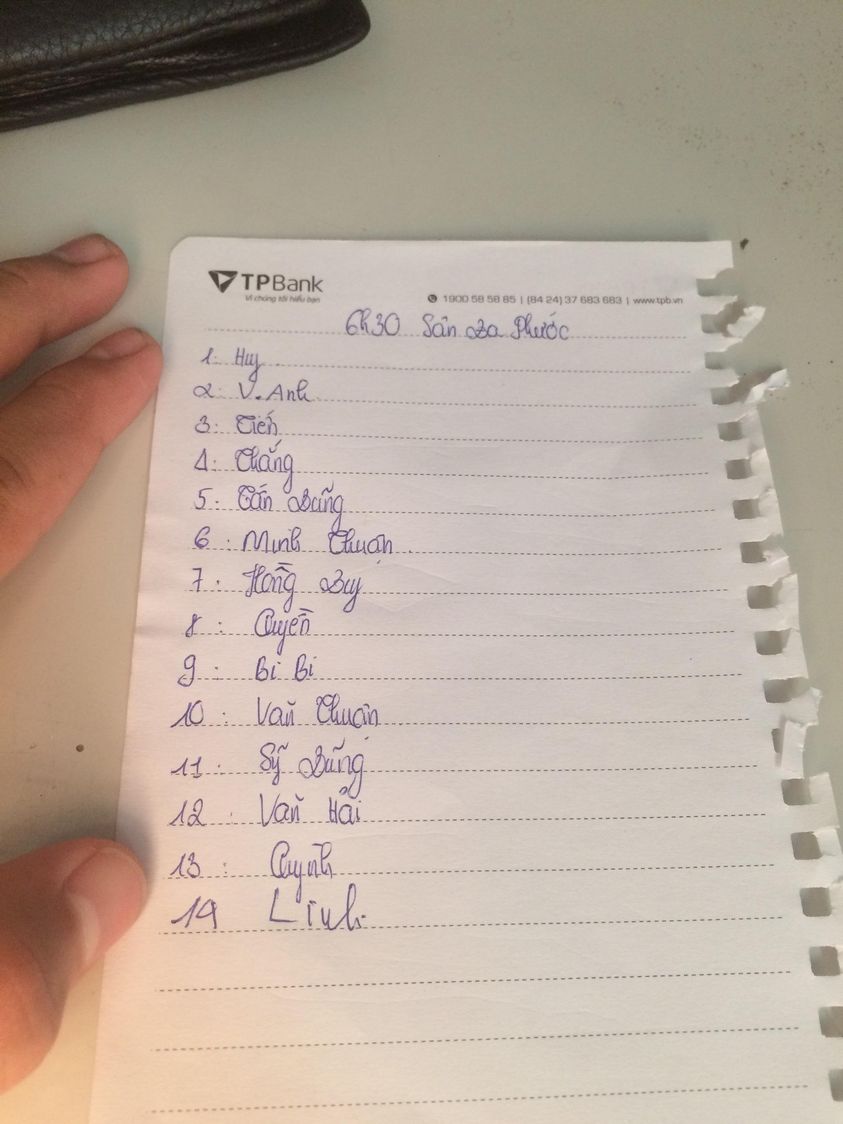 TPBank
Vì chúng tôi hiểu bạn
1900 58 58 85 | (84 24) 37 683 683 | www.tpb.vn
6h30 Sân Ba Phước
1: Huy
2: V. Anh
3: Tiến
4: Thắng
5: Tấn Dũng
6: Minh Thuận
7: Hồng Duy
8: Quyền
9: Bi Bi
10: Văn Thuận
11: Sỹ Dũng
12: Văn Hải
13: Quỳnh
14 Linh